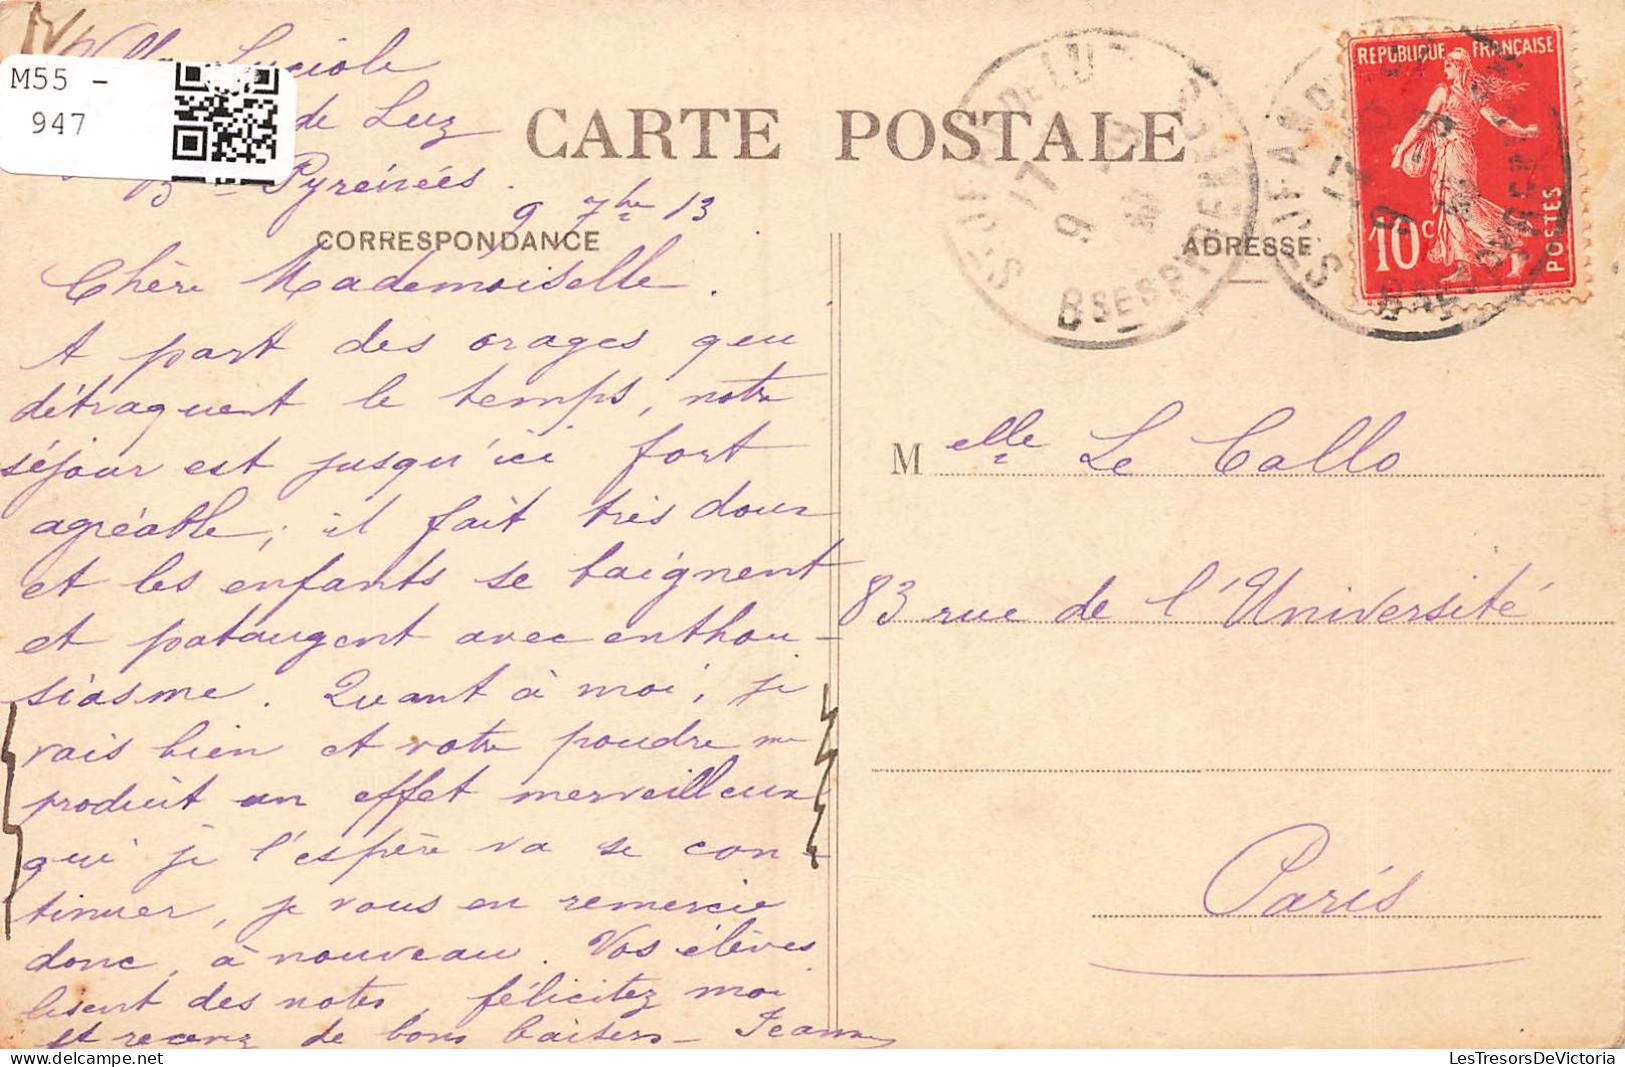 M55 -
947
Villa Luciole
de Luz
Bses Pyrénées.
9 7bre 13
CARTE POSTALE
CORRESPONDANCE
ADRESSE
REPUBLIQUE FRANÇAISE
10c
POSTES
ST JEAN DE LUZ
17
9
BSES PYRENEES
Chère Mademoiselle.
A part des orages qui
détraquent le temps, notre
séjour est jusqu'ici fort
agréable; il fait très doux
et les enfants se baignent
et pataugent avec enthou-
siasme. Quant à moi, je
vais bien et votre poudre me
produit un effet merveilleux
qui je l'espère va se con-
tinuer, je vous en remercie
donc, à nouveau. Vos élèves
lisent des notes, félicitez moi
et recevez de bons baisers - Jeanne
Melle Le Callo
83 rue de l'Université
Paris
LesTresorsDeVictoria